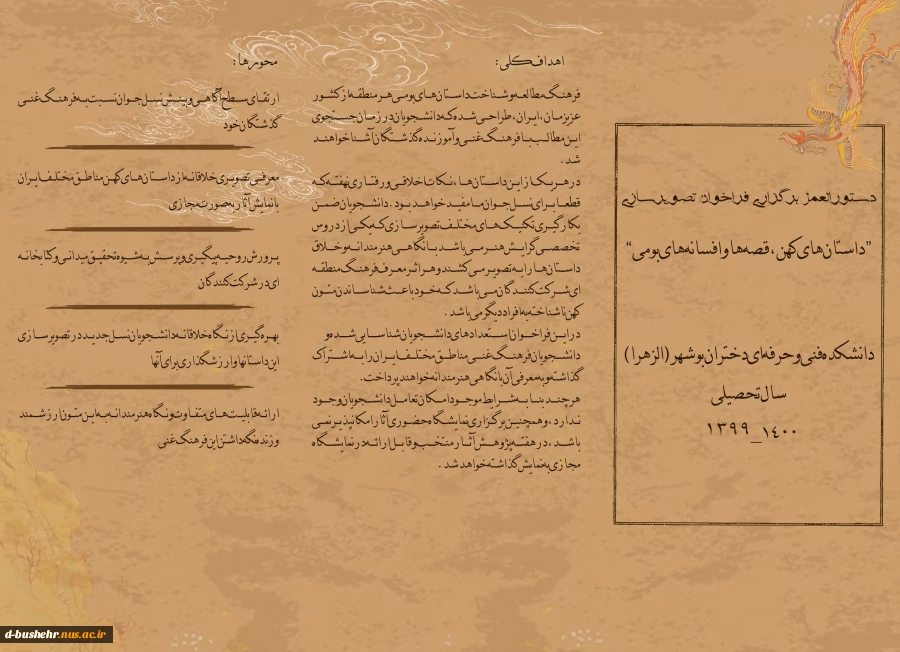 دستورالعمل برگزاری فراخوان تصویرسازی
”داستان‌های کهن، قصه‌ها و افسانه‌های بومی“
دانشکده فنی و حرفه‌ای دختران بوشهر (الزهرا)
سال تحصیلی
۱۴۰۰_۱۳۹۹
اهداف کلی:
فرهنگ مطالعه و شناخت داستان‌های بومی هر منطقه از کشور
عزیزمان، ایران، طراحی شده که دانشجویان در زمان جستجوی
این مطالب با فرهنگ غنی و آموزنده گذشتگان آشنا خواهند
شد.
در هر یک از این داستان‌ها، نکات اخلاقی و رفتاری نهفته که
قطعا برای نسل جوان ما مفید خواهد بود. دانشجویان ضمن
بکارگیری تکنیک‌های مختلف تصویرسازی که یکی از دروس
تخصصی گرایش هنر می‌باشد با نگاهی هنرمندانه و خلاق
داستان‌ها را به تصویر می‌کشند و هر اثر معرف فرهنگ منطقه
ای شرکت کنندگان می‌باشد که خود باعث شناساندن متون
کهن ناشناخته به افراد دیگر می‌باشد.
در این فراخوان استعدادهای دانشجویان شناسایی شده و
دانشجویان فرهنگ غنی مناطق مختلف ایران را به اشتراک
گذاشته و به معرفی آن با نگاهی هنرمندانه خواهند پرداخت.
هر چند بنا به شرایط موجود امکان تعامل دانشجویان وجود
ندارد، و همچنین برگزاری نمایشگاه حضوری آثار امکانپذیر نمی
باشد، در هفته پژوهش آثار منتخب و قابل ارائه در نمایشگاه
مجازی به نمایش گذاشته خواهد شد.
محورها:
ارتقای سطح آگاهی و بینش نسل جوان نسبت به فرهنگ غنی
گذشتگان خود
معرفی تصویری خلاقانه از داستان‌های کهن مناطق مختلف ایران
با نمایش آثار به صورت مجازی
پرورش روحیه پیگیری و پرسش به شیوه تحقیق میدانی و کتابخانه
ای در شرکت کنندگان
بهره‌گیری از نگاه خلاقانه دانشجویان نسل جدید در تصویرسازی
این داستانها و ارزشگذاری برای آنها
ارائه قابلیت‌های متفاوت و نگاه هنرمندانه به این متون ارزشمند
و زنده نگه داشتن این فرهنگ غنی
d-bushehr.nus.ac.ir